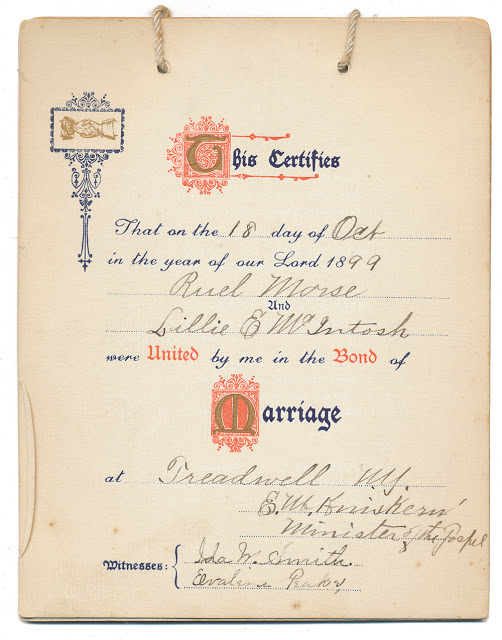 This Certifies
That on the 18 day of Oct
in the year of our Lord 1899
Ruel Morse
And
Lillie E McIntosh
were United by me in the Bond of
Marriage
at Treadwell N.Y.
Kniskern
Minister of the Gospel
Witnesses: Ida M. Smith.
Evaline